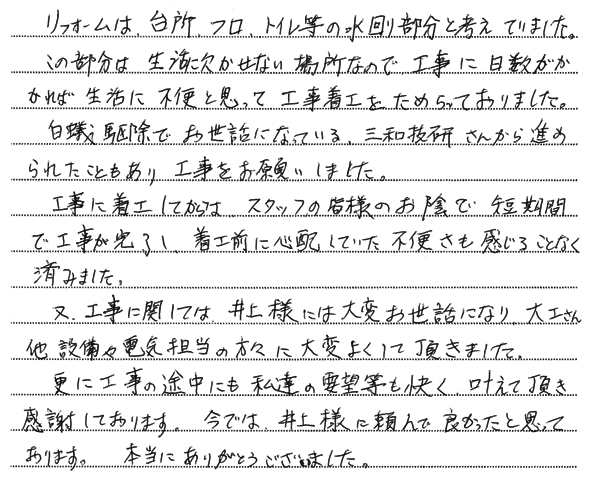 リフォームは、台所、フロ、トイレ等の水回り部分と考えていました。
この部分は生活に欠かせない場所なので工事に日数がか
かれば生活に不便と思って工事着工をためらっておりました。
白蟻駆除でお世話になっている、三和技研さんから進め
られたこともあり工事をお願いしました。
工事に着工してからは、スタッフの皆様のお陰で短期間
で工事が完了し、着工前に心配していた不便さも感じることなく
済みました。
又、工事に関しては、井上様には大変お世話になり、大工さん
他設備や電気担当の方々に大変よくして頂きました。
更に工事の途中にも私達の要望等も快く、叶えて頂き
感謝しております。今では、井上様に頼んで良かったと思って
おります。 本当にありがとうございました。